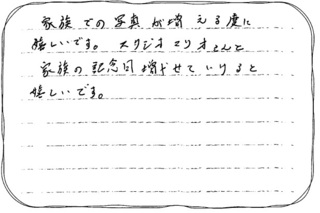 家族での写真が増える度に
嬉しいです。スタジオマリオさんと
家族の記念日増やせていけると
嬉しいです。